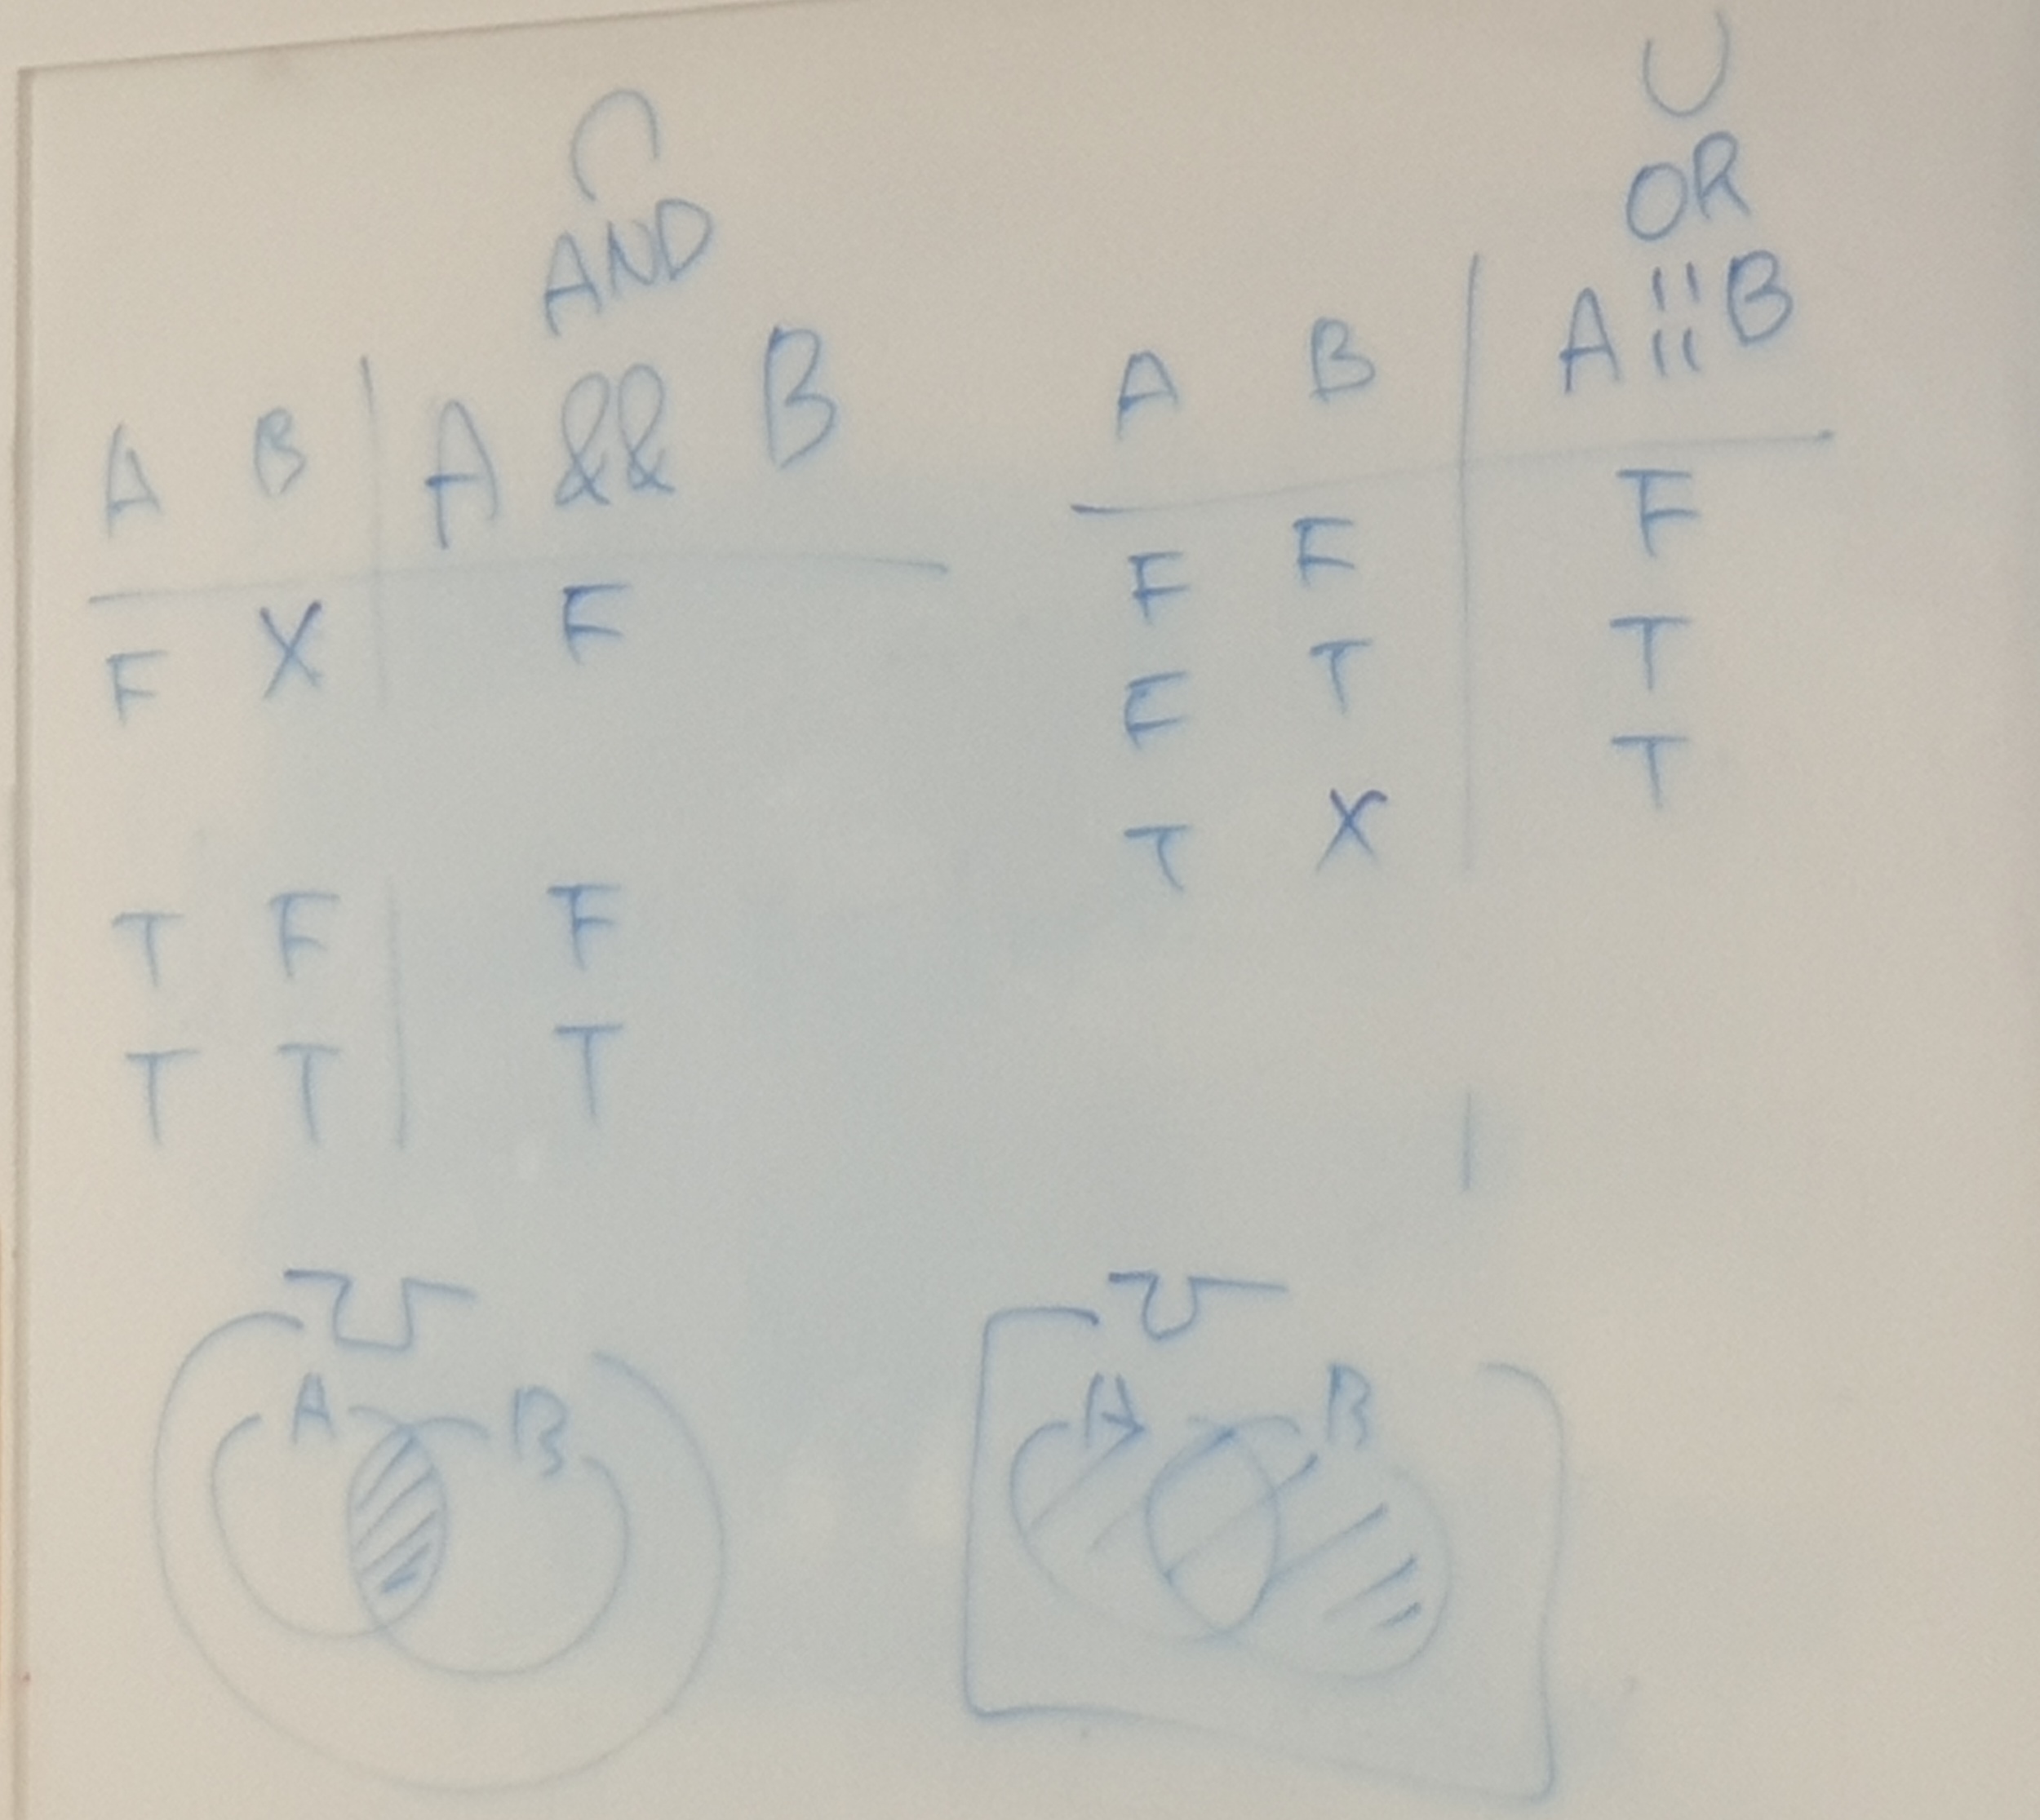 ∩
AND
A B | A && B
F X | F
T F | F
T T | T
∪
OR
A B | A || B
F F | F
F T | T
T X | T
U
A B
U
A B